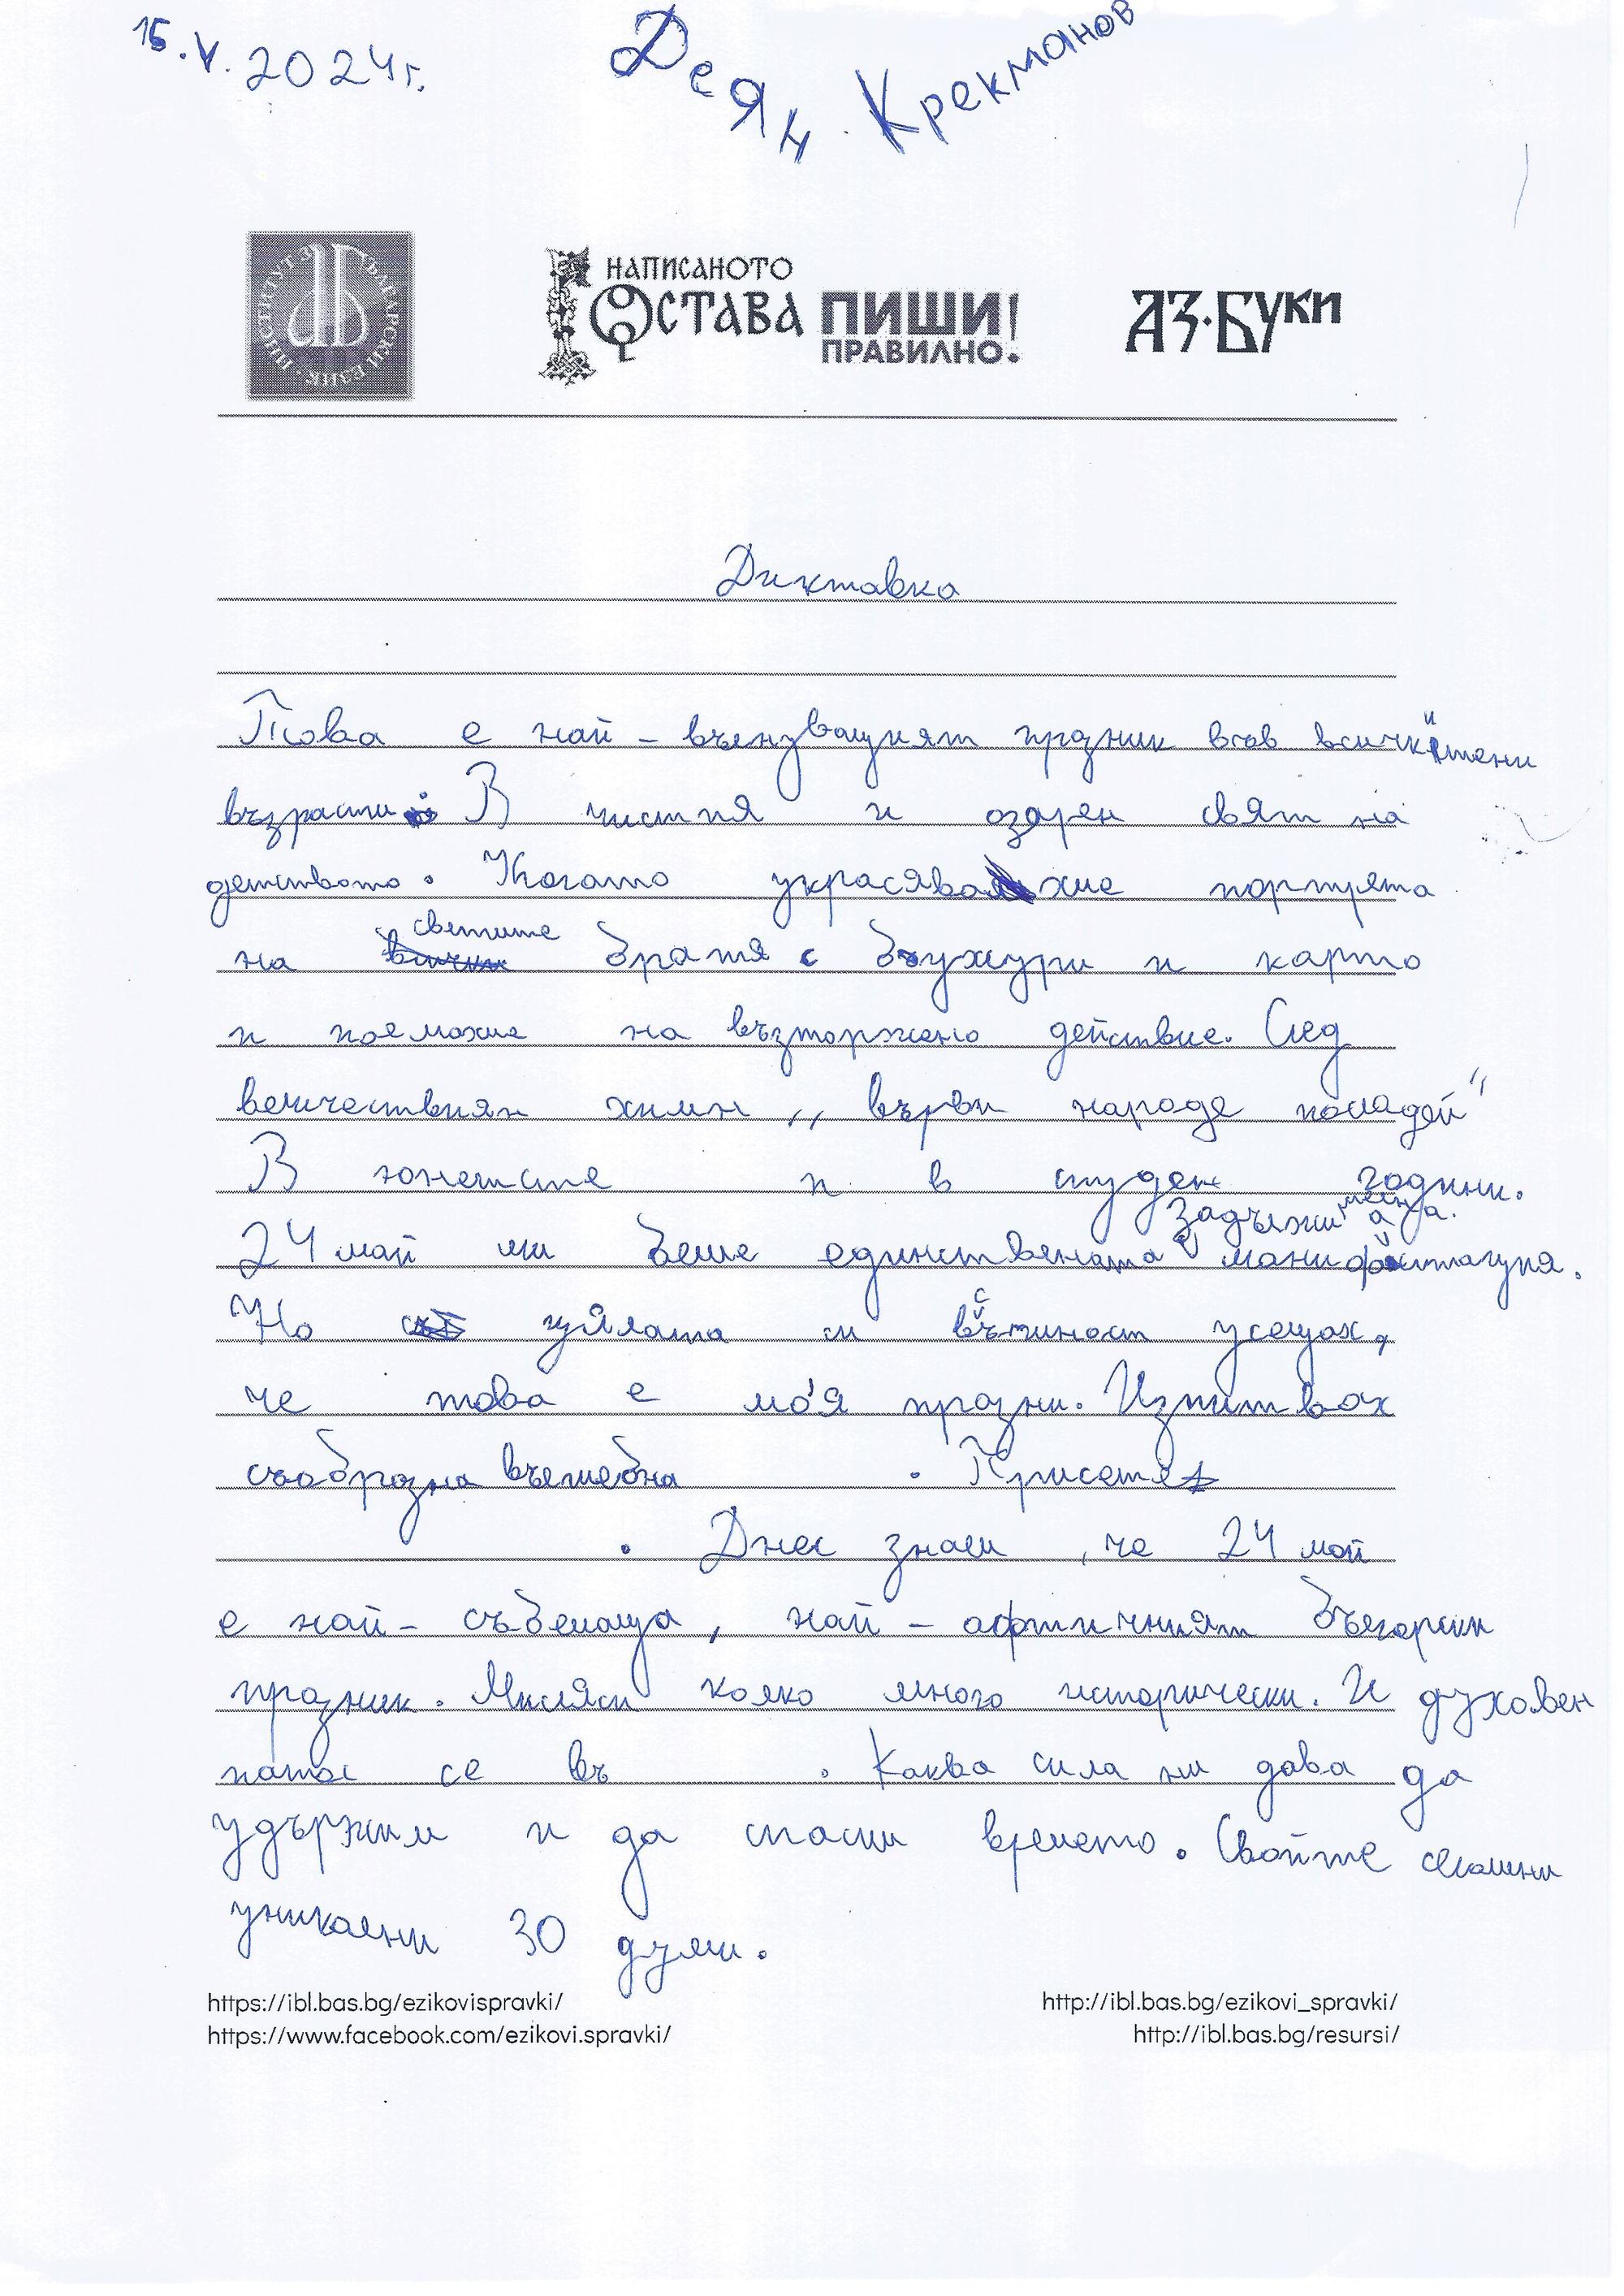 15.V.2024г.
Деян Крекманов
ИНСТИТУТ ЗА БЪЛГАРСКИ ЕЗИК
НАПИСАНОТО
ОСТАВА ПИШИ
ПРАВИЛНО!
АЗ·БУКИ
Диктовка
Това е най - вълнуващият празник във всичките ни
възрасти В чистия и озарен свят на
детството. Когато украсявахме портрета
на светите братя с божури и карто
и поемахме на възторжено действие. След
величествиян химн „ върви народе поладей"
В юнетсте и в студен години.
24 май ми беше единствената задължи манифестация.
Но цялата си същност усещах,
че това е моя празни. Изпитвах
съобразна вълшебна . Присете
. Днес знаеш , че 24 май
е най - събелаща, най - афтичният български
празник. Мисляси колко много исторически. И духовен
патос се въ . Каква сила ни дава да
удържим и да спасим времето. Свойте сегашни
уникални 30 думи.
https://ibl.bas.bg/ezikovispravki/
http://ibl.bas.bg/ezikovi_spravki/
https://www.facebook.com/ezikovi.spravki/
http://ibl.bas.bg/resursi/